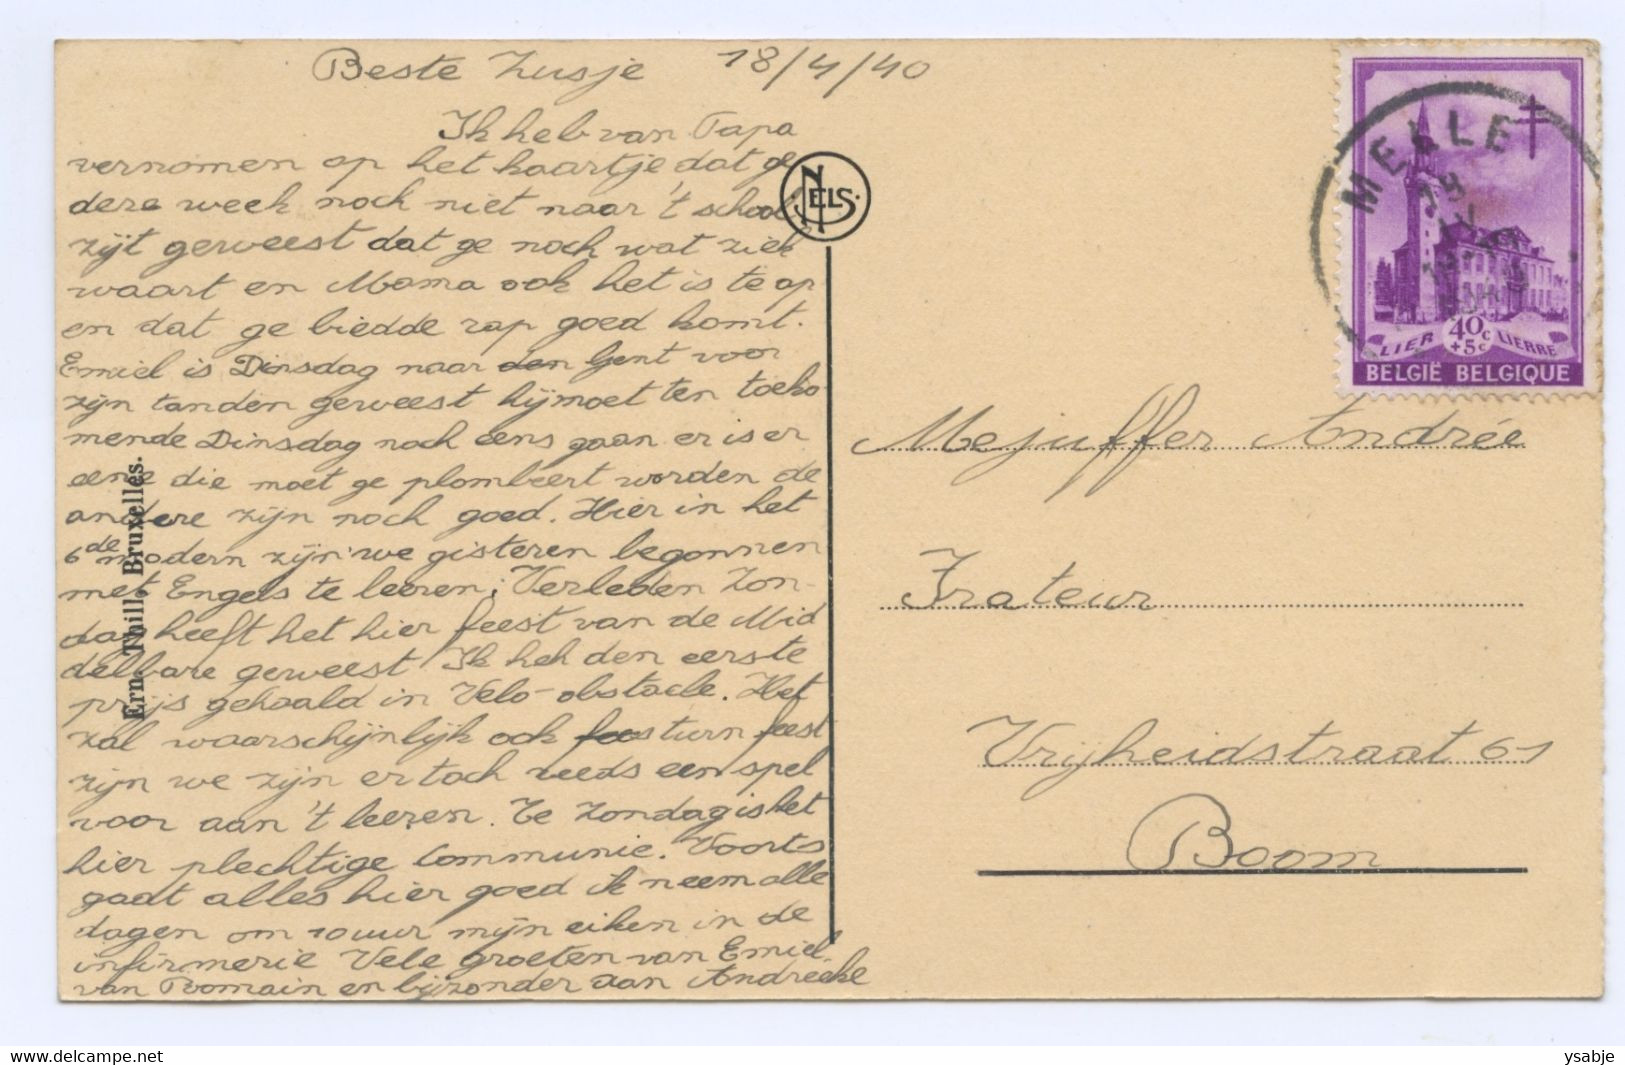 Beste Zusje 18/4/40
Ik heb van Papa
vernomen op het kaartje dat ge
deze week noch niet naar 't school
zijt gerweest dat ge noch wat ziek
waart en Mama ook het is te op
en dat ge biedde rap goed komt.
Emiel is Dinsdag naar den Gent voor
zijn tanden gerweest hij moet ten toeko
mende Dinsdag noch eens gaan er is er
eene die moet ge plombeert worden de
andere zijn noch goed. Hier in het
6de modern zijn we gisteren begonnen
met Engels te leeren; Verleden Zon-
dag heeft het hier feest van de Mid
delbare gerweest Ik heb den eerste
prijs gehaald in Velo-obstacle. Het
zal waarschijnlijk ook turn feest
zijn we zijn er toch reeds een spel
voor aan 't leeren. Te Zondag is het
hier plechtige Communie. Voorts
gaat alles hier goed ik neem alle
dagen om 10 uur mijn eiken in de
infirmerie Vele groeten van Emiel
van Romain en bijzonder aan Andréeke
Ern. Thill, Bruxelles.
NELS
MELLE
LIER 40c +5c LIERRE
BELGIË BELGIQUE
Mejuffer Andrée
Frateur
Vrijheidstraat 61
Boom
www.delcampe.net
ysabje